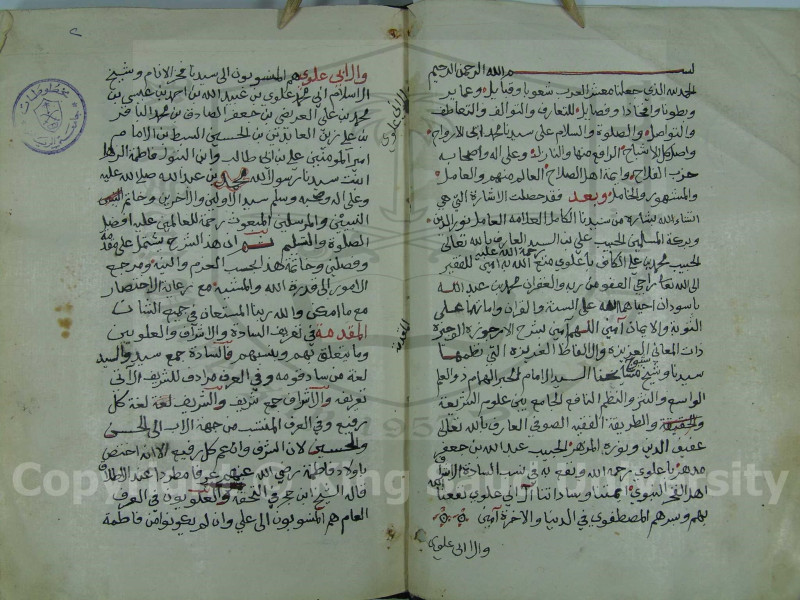 بسم الله الرحمن الرحيم
الحمد لله الذي جعلنا معشر العرب شعوبا وقبايل وعماير
وبطونا وافخاذا وفصايل للتعارف والتوالف والتعاطف
والتواصل والصلوة والسلام على سيدنا محمد ابى الارواح
واصل كل الاشباح الرافع منها والنازل وعلى اله واصحابه
حزب الفلاح وايمة اهل الصلاح العالم منهم والعامل
والمشهور والخامل وبعد فقد حصلت الاشارة التي هي
انشاء الله بشارة من سيدنا الكامل العلامه العامل نور الدين
وبركة المسلمين الحبيب علي بن السيد العارف بالله تعالى
الحبيب محمد بن علي الكاف باعلوي متع الله به امين للفقير
رحمة الله عليه
الى الله تعالى راجي العفو من ربه والغفران محمد بن عبد الله
باسودان احياهما الله على السنة والقران واماتهما على
التوبة والايمان آمين اللهم آمين بشرح الارجوزة الوجيزة
ذات المعاني العزيزة والالفاظ الغريزة التي نظمها
سيدنا وشيخ مشايخنا السيد الامام الحبر الهمام ذو العلم
شيوخ
الواسع والنثر والنظم النافع الجامع بين علوم الشريعة
والحقيقة والطريقة الفقيه الصوفي العارف بالله تعالى
عفيف الدين الحبيب عبد الله بن جعفر
مدهر باعلوي رحمه الله ونفع به في نسب السادة الاشراف
اهل البيت النبوي ايمتنا وساداتنا آل ابي علوي نفعنا الله
بهم وبسرهم المصطفوي في الدنيا والاخرة آمين
وال ابى علوي
وال ابي علوي هم المنسوبون الى سيدنا فخر الانام وشيخ
الاسلام الى محمد علوي بن عبيد الله بن احمد بن عيسى بن
محمد بن علي العريضي بن جعفر الصادق بن محمد الباقر
بن علي زين العابدين بن الحسين السبط بن الامام
امير المومنين علي بن ابي طالب وابن البتول فاطمة الزهرا
ابنت سيدنا رسول الله محمد بن عبد الله صلى الله عليه
وعلى اله وصحبه وسلم سيد الاولين والاخرين وخاتم
النبيئين والمرسلين المبعوث رحمة للعالمين عليه افضل
الصلوة والتسليم ان هذا الشرح يشتمل على مقدمة
وفصلين وخاتمة هذا بحسب العزم والنية ومرجع
الامور الى قدرة الله والمشيئة مع رعاية الاختصار
مع ما امكن والله ربنا المستعان في جميع الشان
المقدمة في تعريف السادة والاشراف والعلويين
وما يتعلق بهم وبنسبهم فالسادة جمع سيد والسيد
لغة من ساد قومه وفي العرف مرادف للشريف الآتي
تعريفه والاشراف جمع شريف والشريف لغة كل
رفيع وفي العرف المنتسب من جهة الاب الى الحسن
والحسين لان الشرف وان عم كل رفيع الا انه اختص
باولاد فاطمة رضي الله عنهم عرفا مطردا عند الاطلاق
قاله الشيخ ابن حجر في التحفة والعلويون في العرف
العام هم المنسوبون الى علي وان لم يكونوا من فاطمة
ال ابى علوي
المقدمة
Copyright © King Saud University
1957